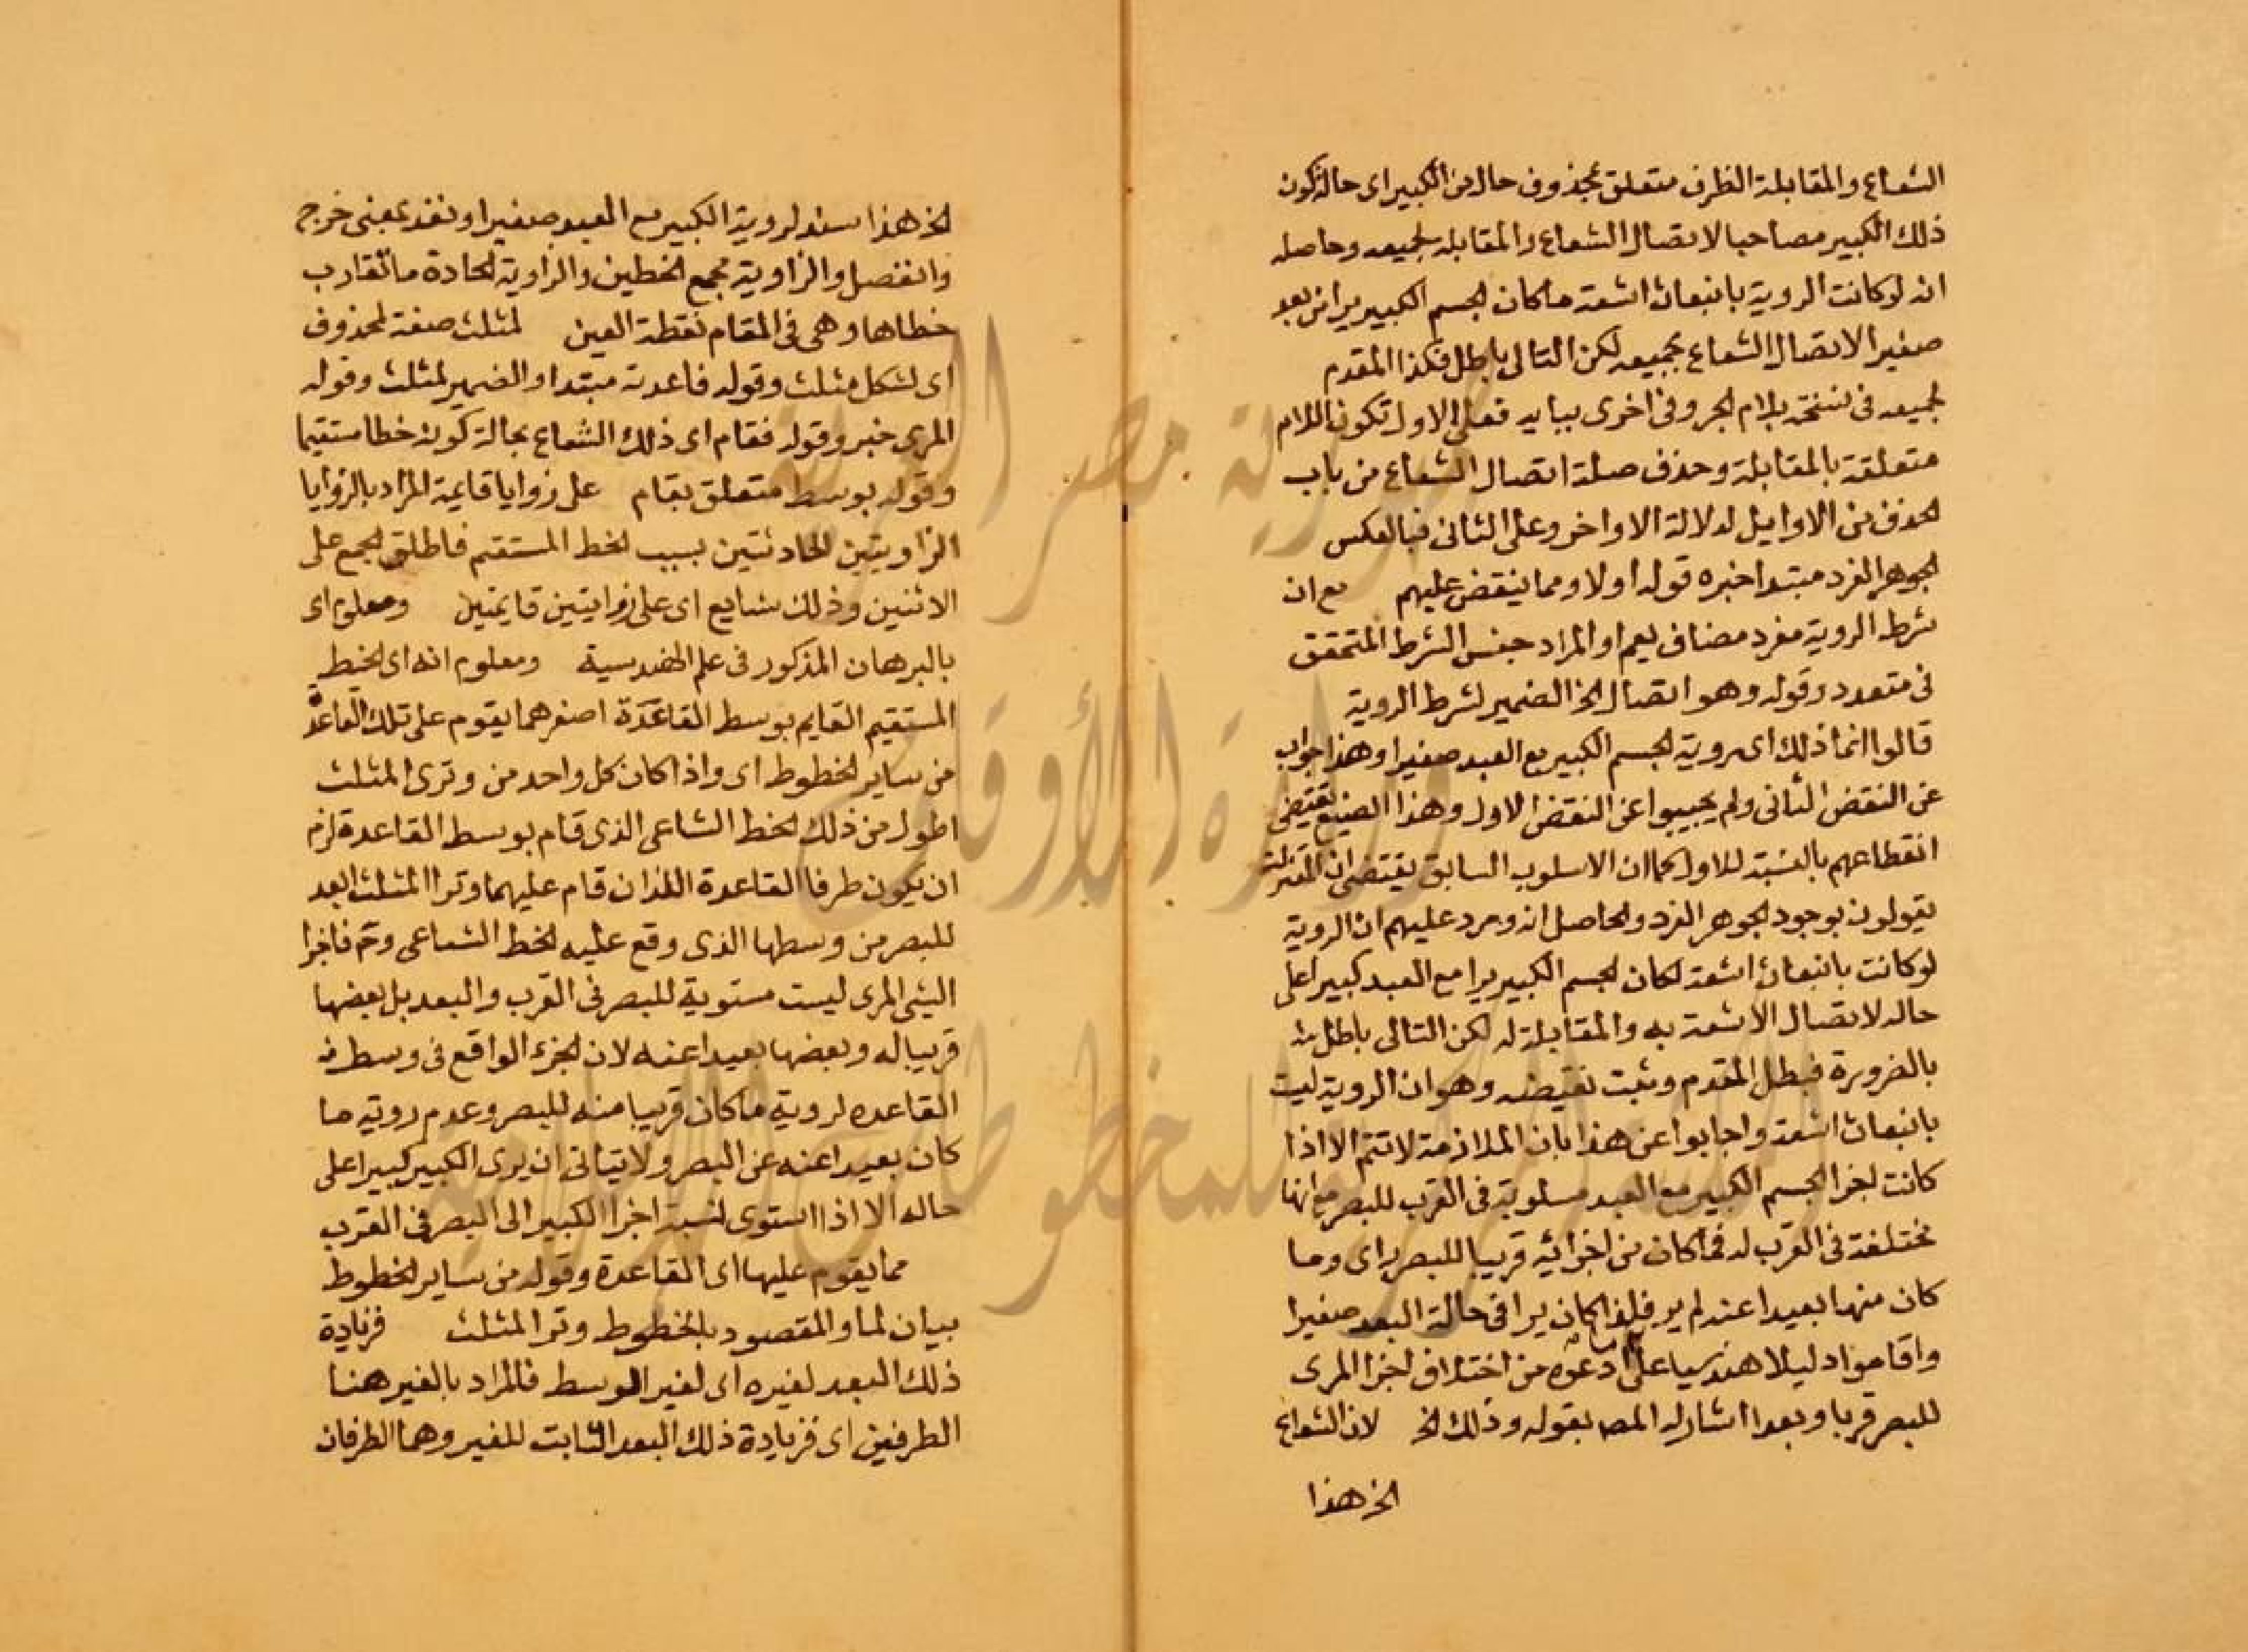 الشعاع والمقابلة الظرف متعلق بمحذوف حال من الكبير اى حالة كون
ذلك الكبير مصاحبا لاتصال الشعاع والمقابلة لجميعه وحاصله
انه لو كانت الروية بانبعاث اشعة ما كان الجسم الكبير يرا من بعد
صغيرا لاتصال الشعاع بجميعه لكن التالى باطل فكذا المقدم
لجميعه فى نسخة بلام الجر وفى اخرى بباء يه فعلى الاول تكون اللام
متعلقة بالمقابلة وحذف صلة اتصال الشعاع من باب
الحذف من الاوايل لدلالة الاواخر وعلى الثانى فبالعكس
الجوهر الفرد مبتدا خبره قوله اولا ومما ينقض عليهم مع ان
شرط الروية مفرد مضاف يعم او المراد جنس الشرط المتحقق
فى متعدد وقوله وهو اتصال الخ الضمير لشرط الروية
قالوا انما ذلك اى روية الجسم الكبير مع البعد صغيرا وهذا جواب
عن النقض الثانى ولم يجيبوا عن النقض الاول وهذا الصنيع يقتضى
انقطاعهم بالنسبة للاول كما ان الاسلوب السابق يقتضى ان المعتزلة
يقولون بوجود الجوهر الفرد والحاصل انه ورد عليهم ان الروية
لو كانت بانبعاث اشعة لكان الجسم الكبير يرا مع البعد كبيرا على
حاله لاتصال الاشعة به والمقابلة له لكن التالى باطل
بالضرورة فبطل المقدم وثبت نقيضه وهو ان الروية ليست
بانبعاث اشعة واجابوا عن هذا بان الملازمة لا تتم الا اذا
كانت اجزا الجسم الكبير مع البعد مستوية فى القرب للبصر مع انها
مختلفة فى القرب له فما كان من اجزائه قريبا للبصر يراى وما
كان منها بعيدا عنه لم ير فلذا كان يرا فى حالة البعد صغيرا
واقاموا دليلا هندسيا على ما ادعوه من اختلاف اجزا المرى
للبصر قربا وبعدا اشار له المص بقوله وذلك الخ لان الشعاع
الخ هذا
الخ هذا سند لروية الكبير مع البعد صغيرا ونفذ بمعنى خرج
وانفصل والزاوية مجمع الخطين والزاوية الحادة ما تقارب
خطاها وهى فى المقام نقطة العين لمثلث صفة لمحذوف
اى لشكل مثلث وقوله قاعدته مبتدا والضمير لمثلث وقوله
المرى خبر وقوله فقام اى ذلك الشعاع بحالة كونه خطا مستقيما
وقوله بوسط متعلق بقام على زوايا قايمة المراد بالزوايا
الزاويتين الحادثتين بسبب الخط المستقم فاطلق الجمع على
الاثنين وذلك شايع اى على زوايتين قايمتين ومعلوم اى
بالبرهان المذكور فى علم الهندسية ومعلوم انه اى الخيط
المستقيم القايم بوسط القاعدة اصغر مما يقوم على تلك القاعدة
من ساير الخطوط اى واذا كان كل واحد من وترى المثلث
اطول من ذلك الخط الشاعى الذى قام بوسط القاعدة لزم
ان يكون طرفا القاعدة اللذان قام عليهما وترا المثلث ابعد
للبصر من وسطها الذى وقع عليه الخط الشعاعى وح فاجزا
الشى المرى ليست مستوية للبصر فى القرب والبعد بل بعضها
قريبا له وبعضها بعيدا عنه لان الجزء الواقع فى وسط
القاعده لروية ما كان قريبا منه للبصر وعدم روية ما
كان بعيدا عنه عن البصر ولا يتاتى ان يرى الكبير كبيرا على
حاله الا اذا استوى نسبة اجزا الكبير الى البصر فى القرب
مما يقوم عليها اى القاعدة وقوله من ساير الخطوط
بيان لما والمقصود بالخطوط وترا المثلث فزيادة
ذلك البعد لغيره اى لغير الوسط فالمراد بالغير هنا
الطرفين اى فزيادة ذلك البعد الثابت للغير وهما الطرفان
جمهورية مصر العربية
وزارة الأوقاف